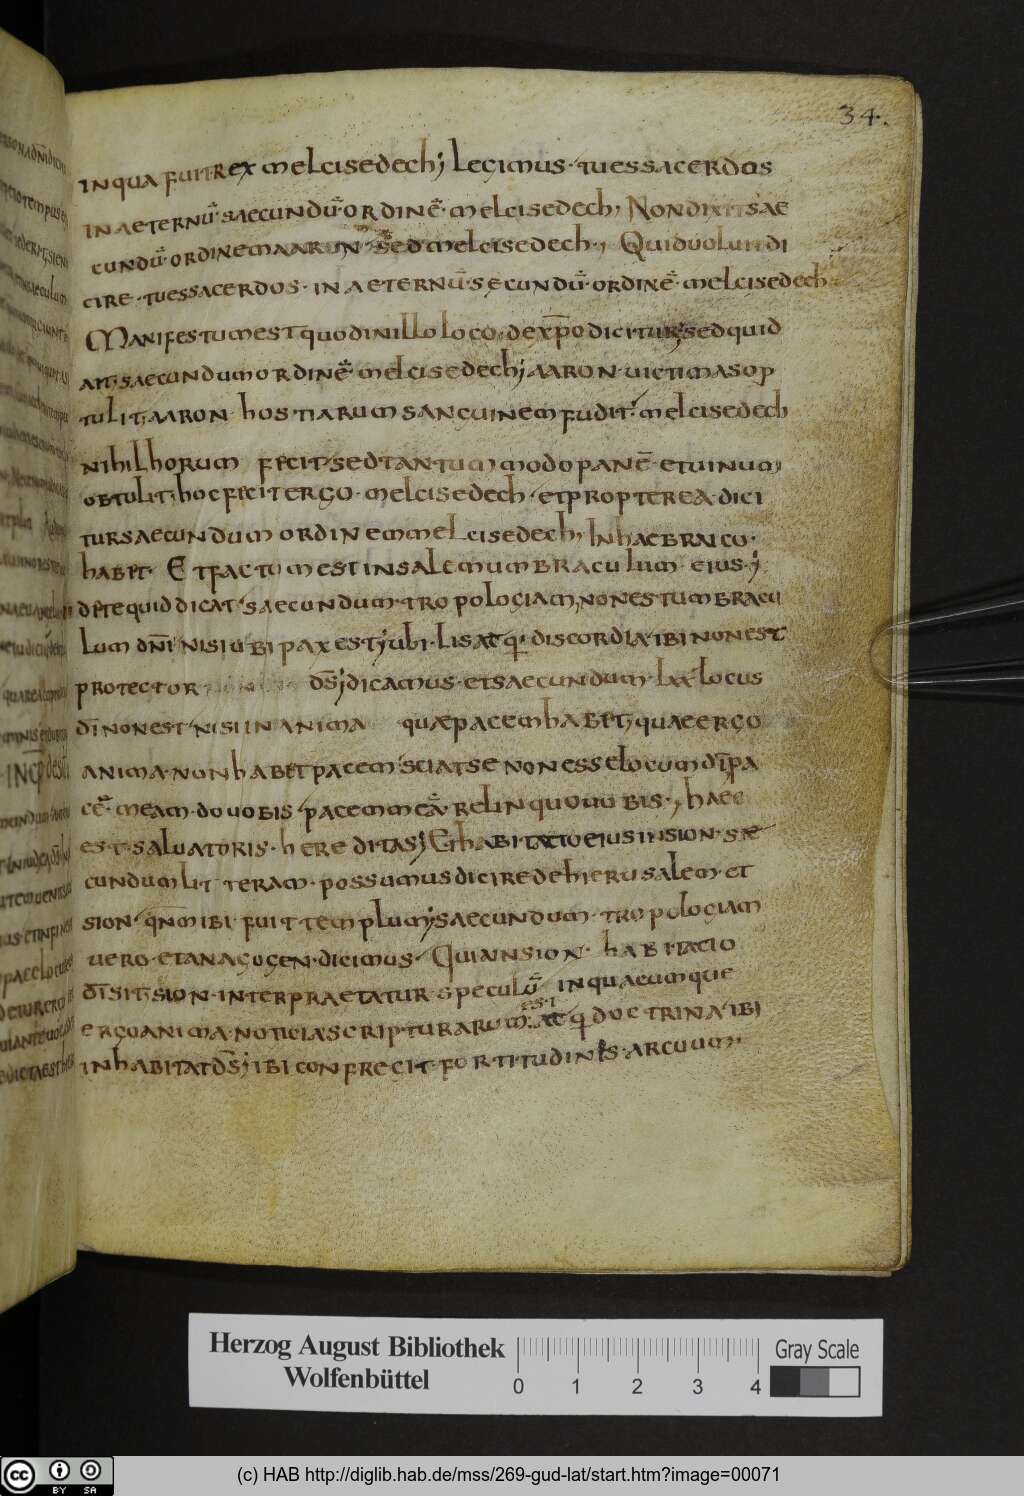 34.
in qua fuit rex melcisedech; Legimus· tu es sacerdos
in aeternū· saecundū ordinē· melcisedech, Non dixit sae
cundū· ordinem aaron· sed melcisedech·, Quid uolunt di
cire· tu es sacerdos· in aeternū· secundū· ordinē· melcisedech·
Manifestum est quod in illo loco· de xp̄o dicitur; sed quid
ait; saecundum ordinē melcisedech; aaron· uictimas op
tulit; aaron hostiarum sanguinem fudit· melcisedech
nihil horum fecit· sed tantum modo panē· et uinum
obtulit; hoc fecit ergo· melcisedech· et propterea· dici
tur saecundum ordinem melcisedech, In haebraico·
habet· Et factum est in salem umbraculum· eius·;
d̄ te quid dicat· saecundum· tropologiam, non est umbracu
lum dn̄i· nisi ubi pax est; ubi· lis atq; discordia· ibi non est
protector ds̄; dicamus· et saecundum· lxx· locus
dī non est· nisi in anima quae pacem habet; quae ergo
anima· non habet pacem· sciat se non esse locum dī; pa
cē· meam· do uobis· pacem meā· relinquo uobis·, haec
est· saluatoris· hereditas; Et habitatio eius in sion· sae
cundum litteram· possumus dicire de hierusalem· et
sion· qn̄m ibi· fuit templum; saecundum· tropologiam
uero· et anagogen· dicimus· Quia in sion· habitatio
dī sit; sion· interpraetatur· speculū· in qua cumque
est
ergo anima· noticia scripturarum· atq; doctrina· ibi
inhabitat ds̄; ibi confregit· fortitudinis· arcuum·
Herzog August Bibliothek
Wolfenbüttel
0 1 2 3 4
Gray Scale
cc BY SA
(c) HAB http://diglib.hab.de/mss/269-gud-lat/start.htm?image=00071